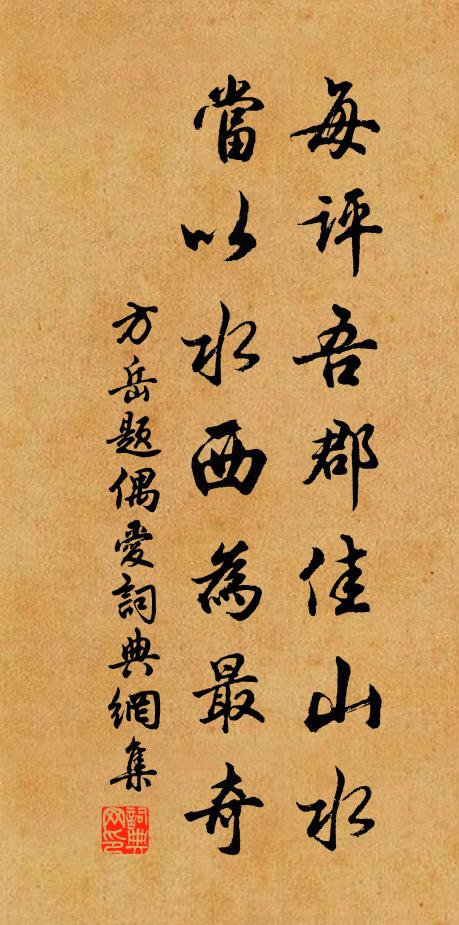 每評吾郡佳山水
當以水西為最奇
方岳題偶愛詞典網集
詞典网印